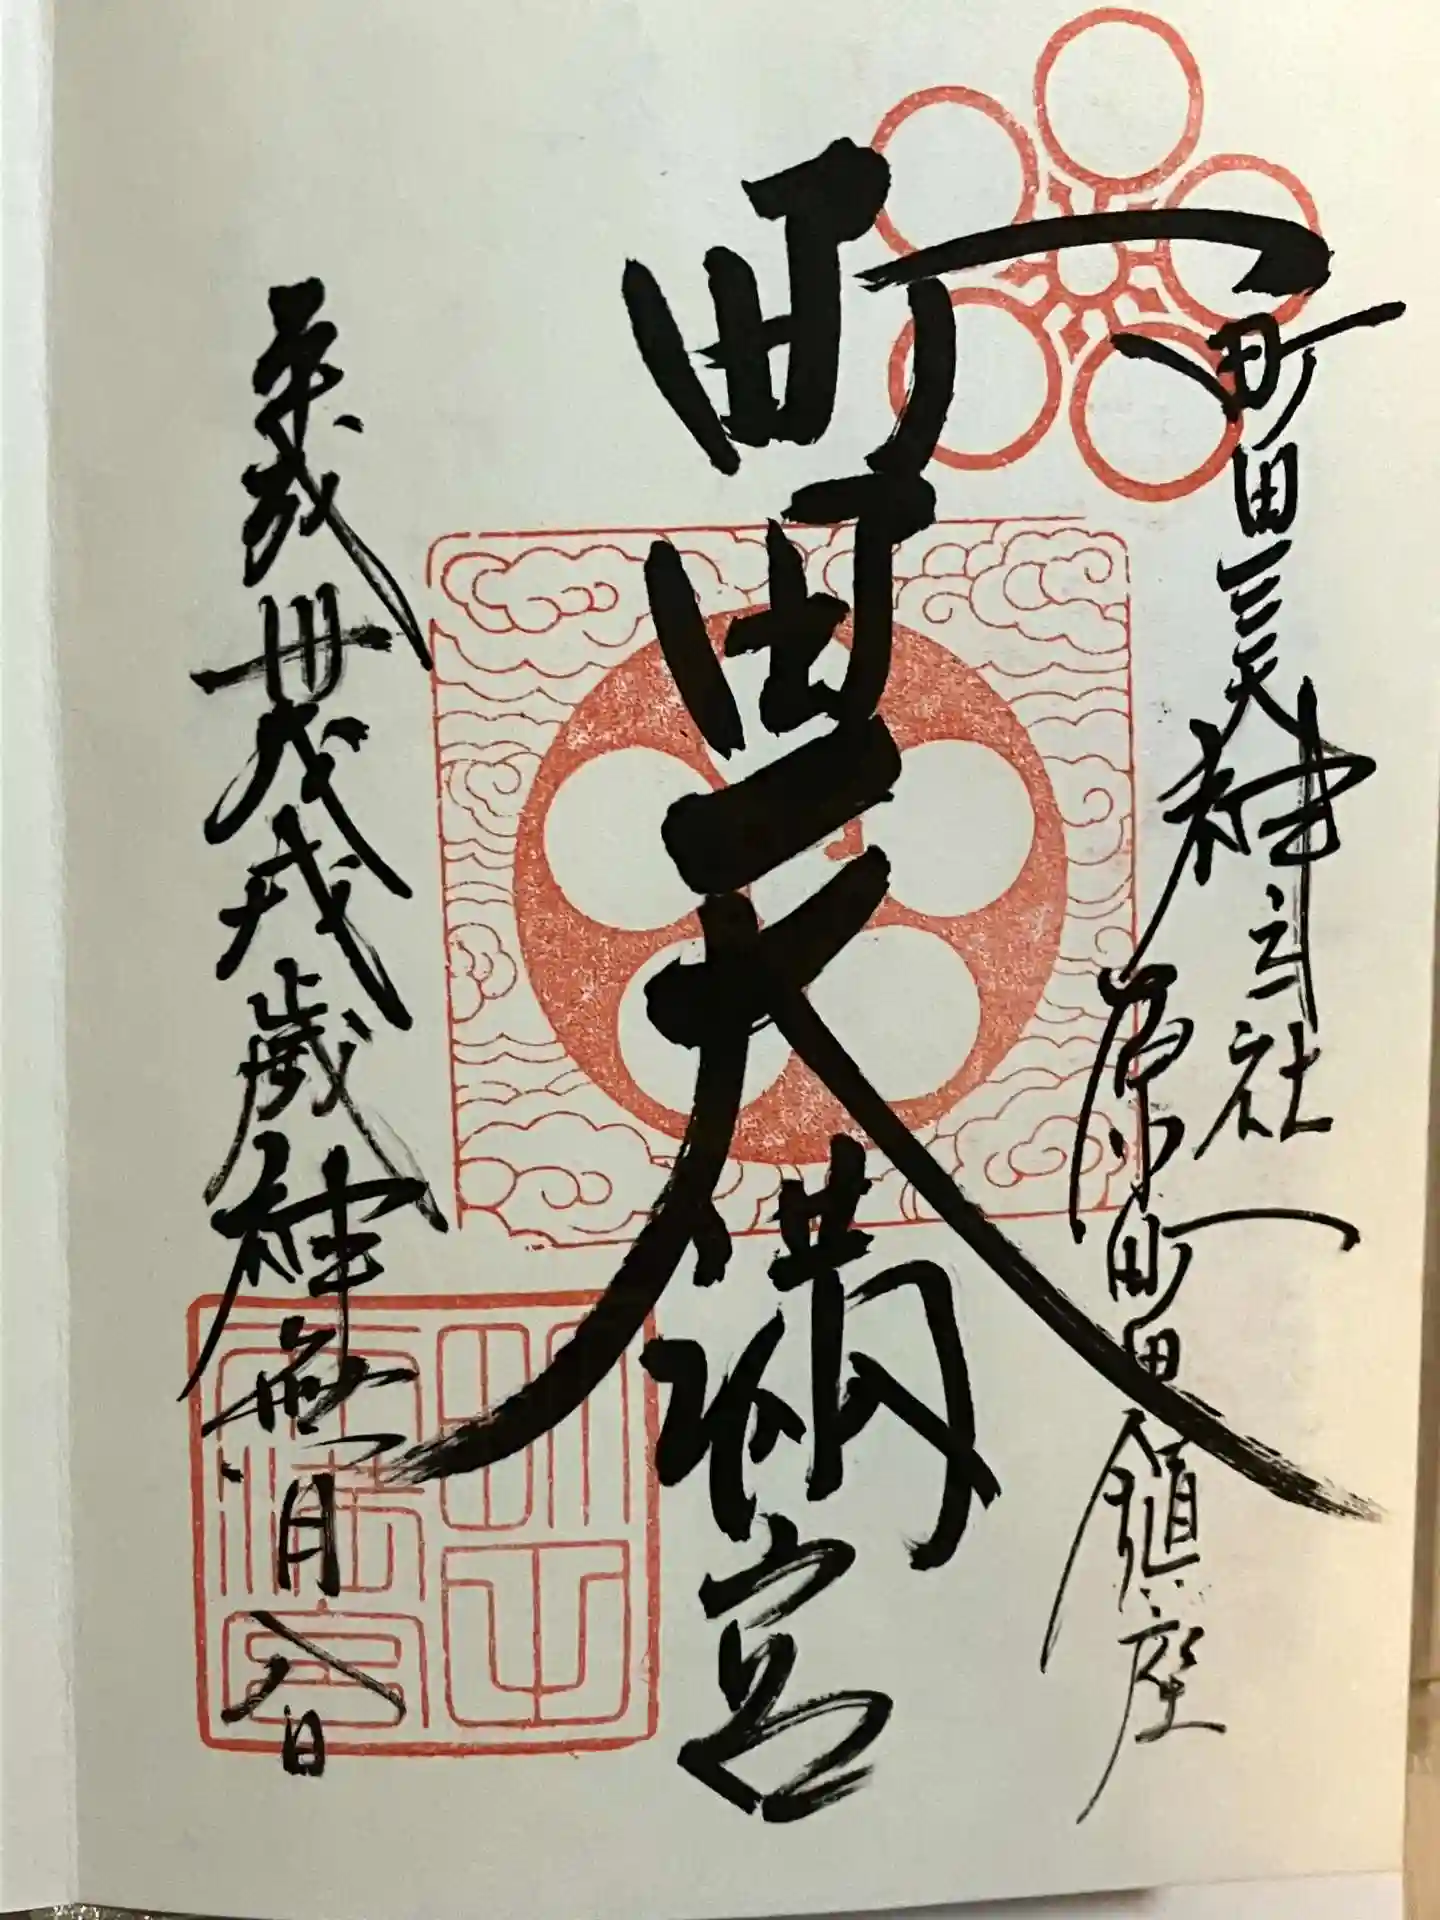 町田三天神之社
原町田鎮座
町田天満宮
平成卅戊戌歳神無月八日
町田天満宮